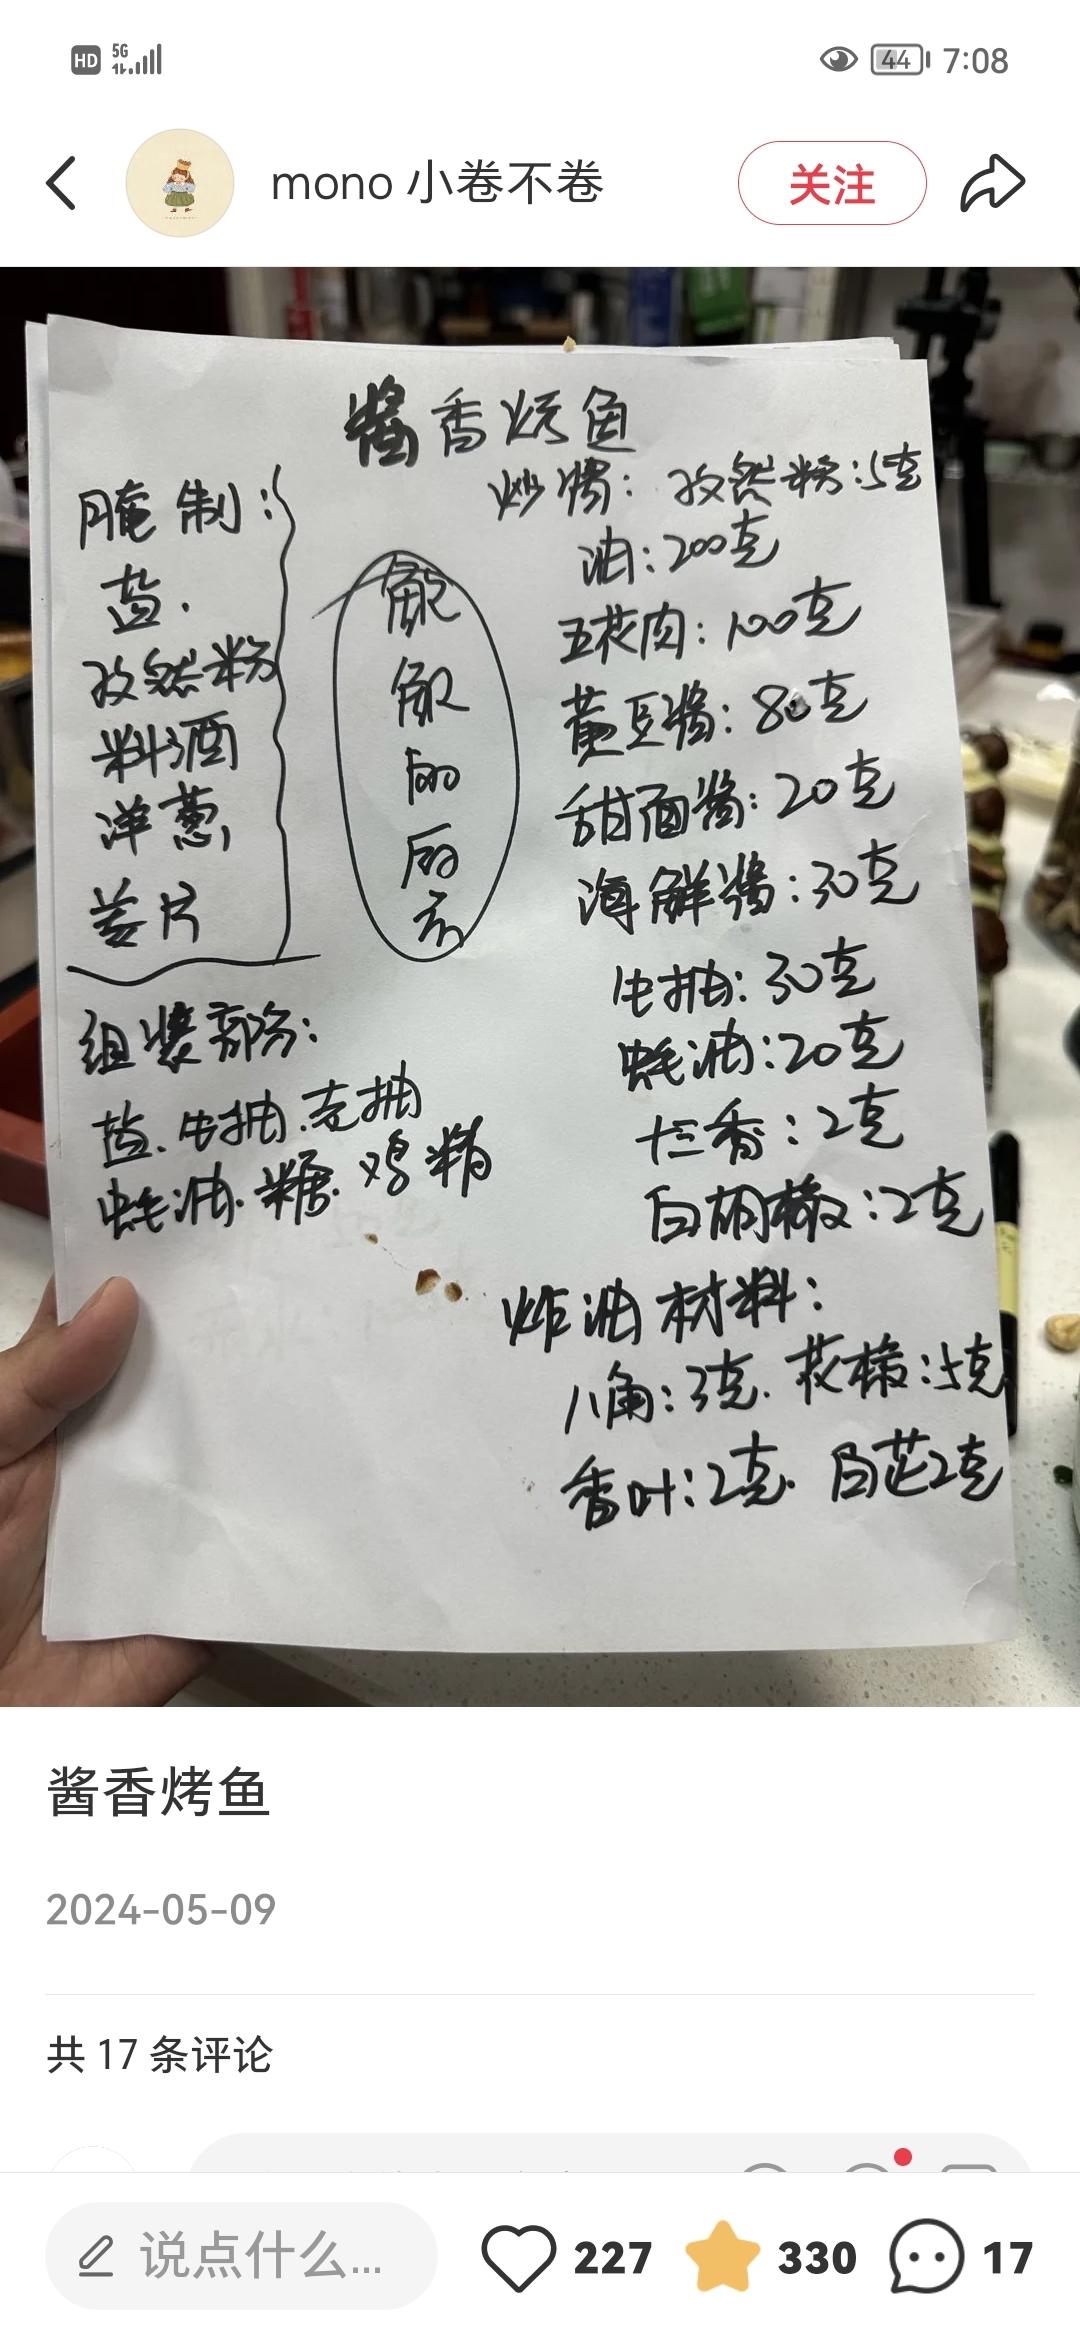 HD 5G 44 7:08
mono 小卷不卷 关注
酱香烤鱼
腌制:
盐.
孜然粉
料酒
洋葱,
姜片
组装部分:
盐.生抽.老抽
蚝油.糖.鸡精
炒酱: 孜然粉:5克
油:200克
五花肉:100克
黄豆酱:80克
甜面酱:20克
海鲜酱:30克
生抽:30克
蚝油:20克
十三香:2克
白胡椒:2克
炸油材料:
八角:3克.花椒:5克
香叶:2克.白芷2克
酱香烤鱼
2024-05-09
共 17 条评论
说点什么... 227 330 17